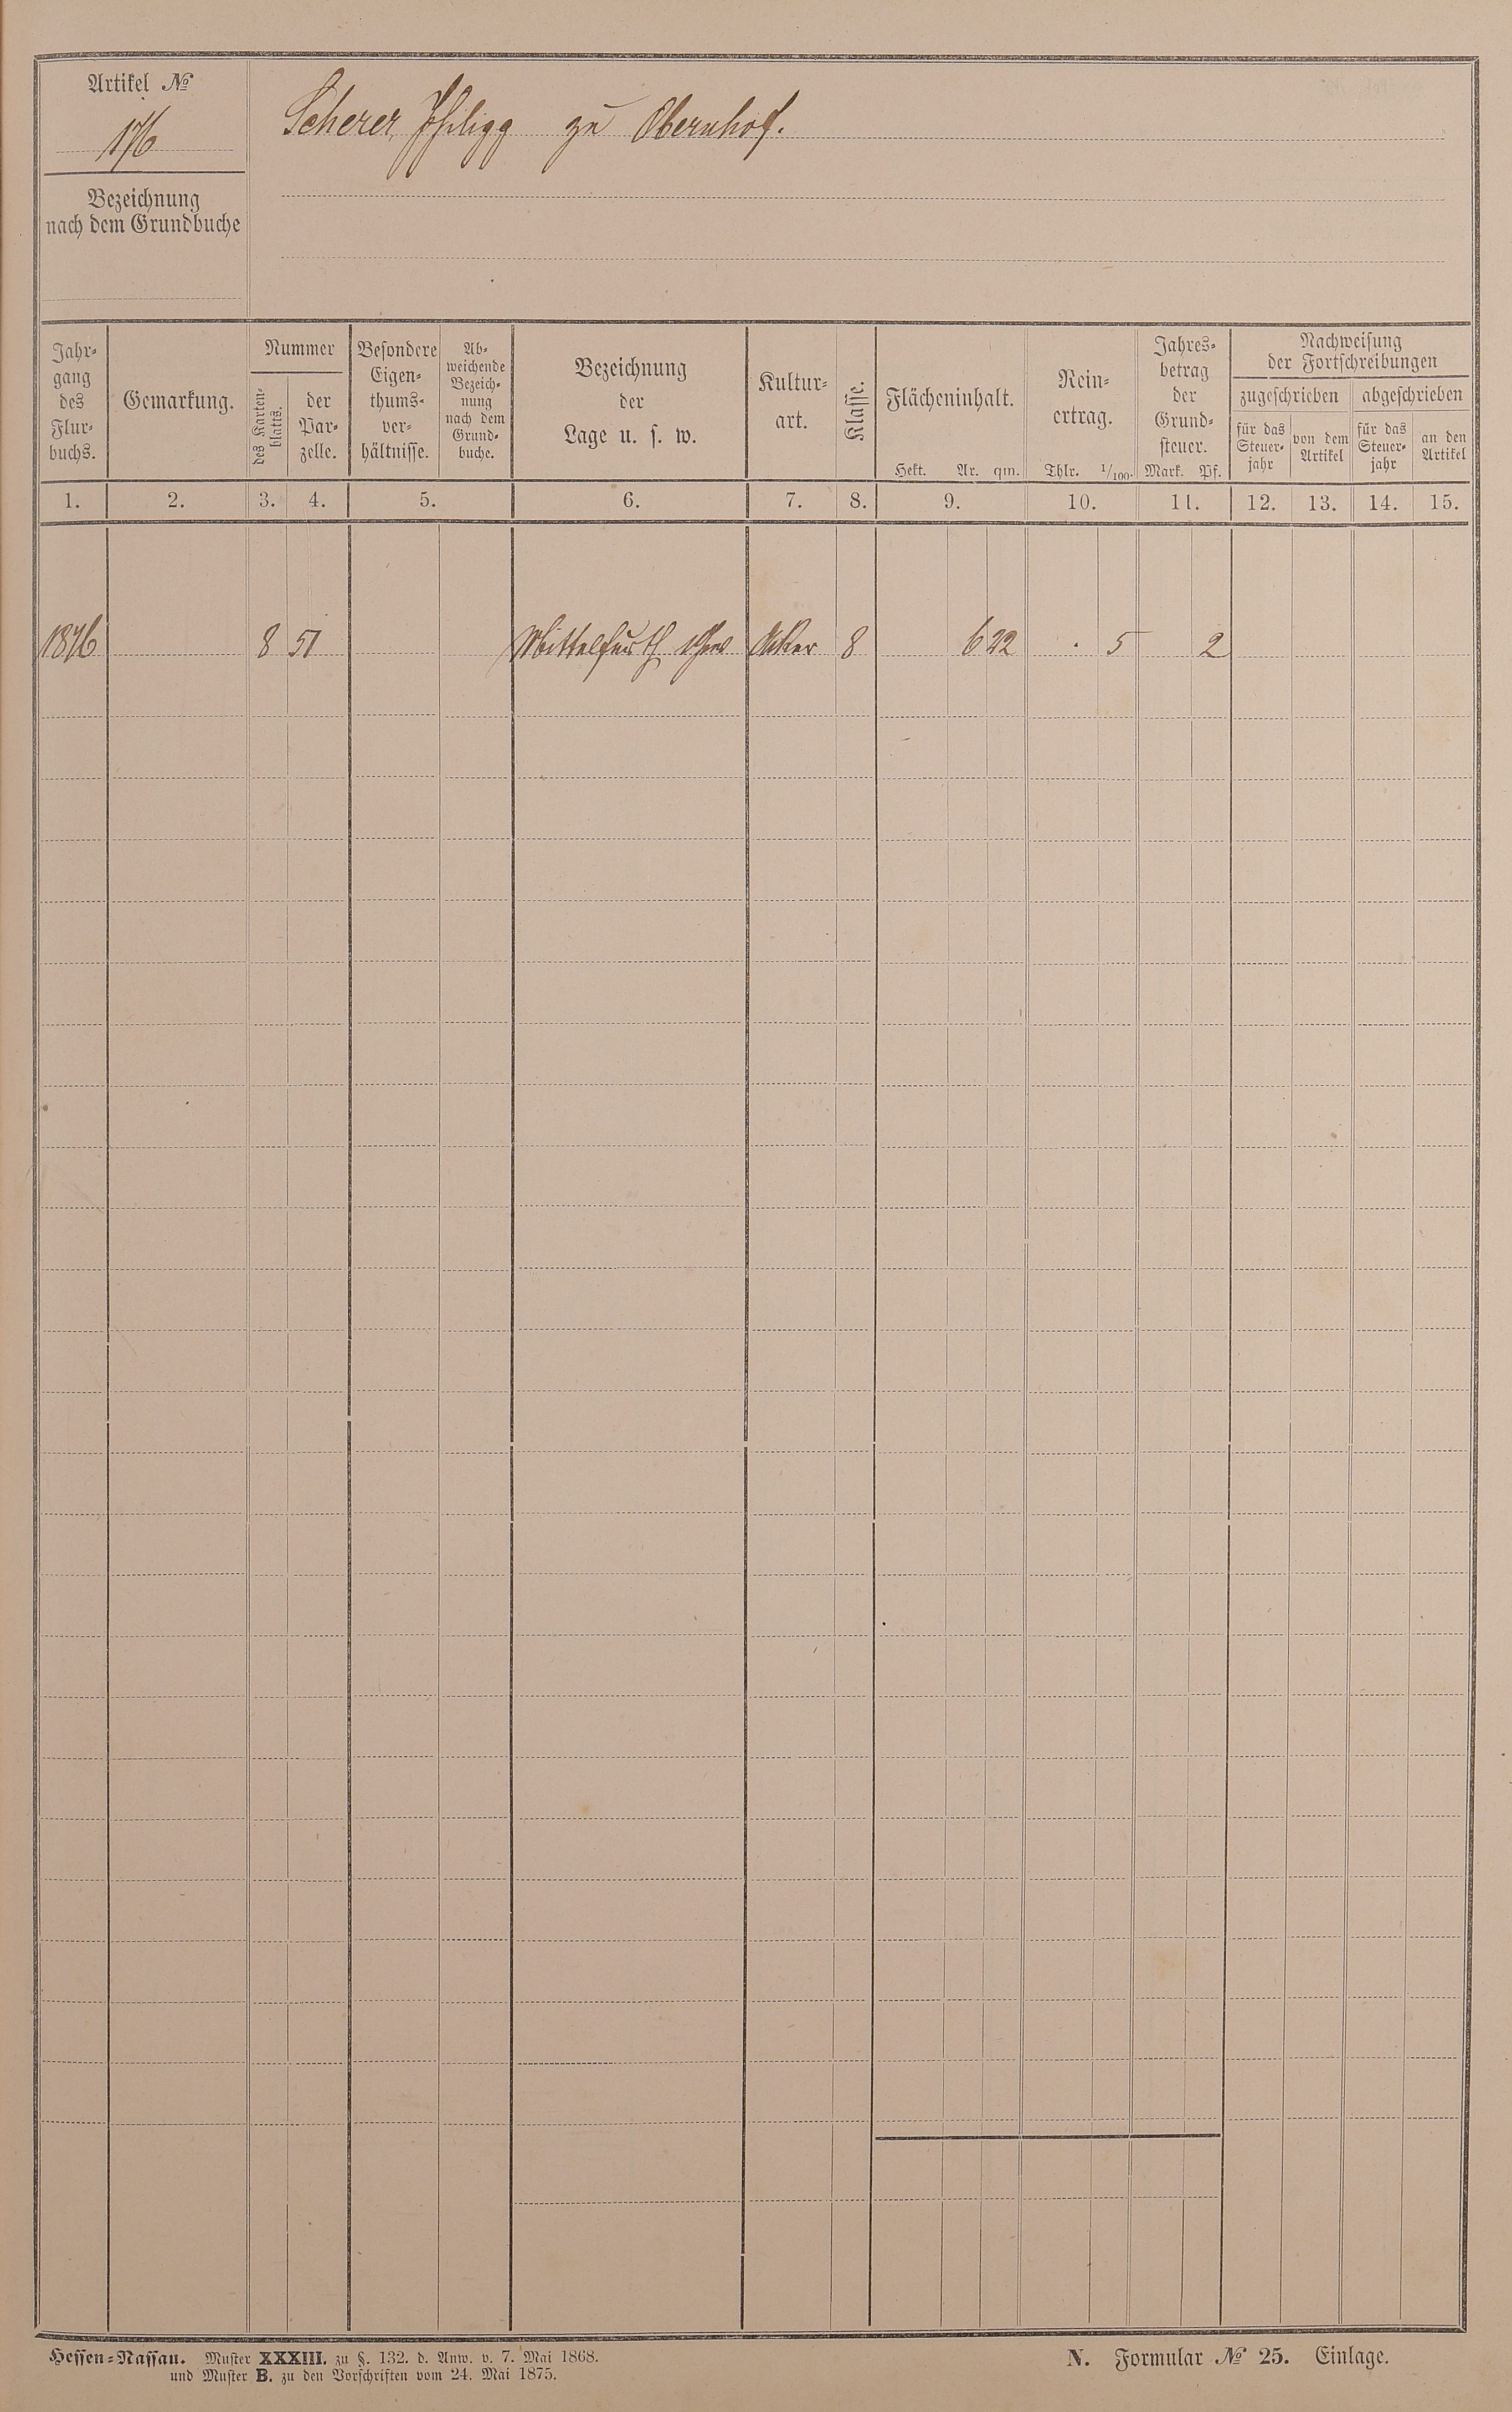 Artikel №
176
Scherer Philipp zu Obernhof.
Bezeichnung
nach dem Grundbuche
Jahr-
gang
des
Flur-
buchs.
Gemarkung.
Nummer
des Karten-
blatts.
der
Par-
zelle.
Besondere
Eigen-
thums-
ver-
hältnisse.
Ab-
weichende
Bezeich-
nung
nach dem
Grund-
buche.
Bezeichnung
der
Lage u. s. w.
Kultur-
art.
Klasse.
Flächeninhalt.
Hekt. Ar. qm.
Rein-
ertrag.
Thlr. 1/100.
Jahres-
betrag
der
Grund-
steuer.
Mark. Pf.
Nachweisung
der Fortschreibungen
zugeschrieben
abgeschrieben
für das
Steuer-
jahr
von dem
Artikel
für das
Steuer-
jahr
an den
Artikel
1. 2. 3. 4. 5. 6. 7. 8. 9. 10. 11. 12. 13. 14. 15.
1876 8 51 Mittelfurth Acker 8 6 22 . 5 2
Hessen-Nassau. Muster XXXIII. zu §. 132. d. Anw. v. 7. Mai 1868.
und Muster B. zu den Vorschriften vom 24. Mai 1875.
N. Formular № 25. Einlage.